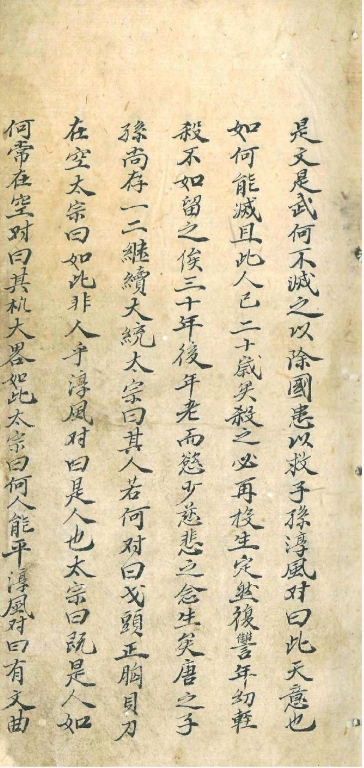 是文是武何不滅之以除國患以救子孫淳風对曰此天意也
如何能滅且此人已二十歲矣殺之必再投生定然復讐年幼輕
殺不如留之俟三十年後年老而慾少慈悲之念生矣唐之子
孫尚存一二継續大統太宗曰其人若何对曰戈頭正胸貝刀
在空太宗曰如此非人乎淳風对曰是人也太宗曰既是人如
何常在空对曰其机大畧如此太宗曰何人能平淳風对曰有文曲